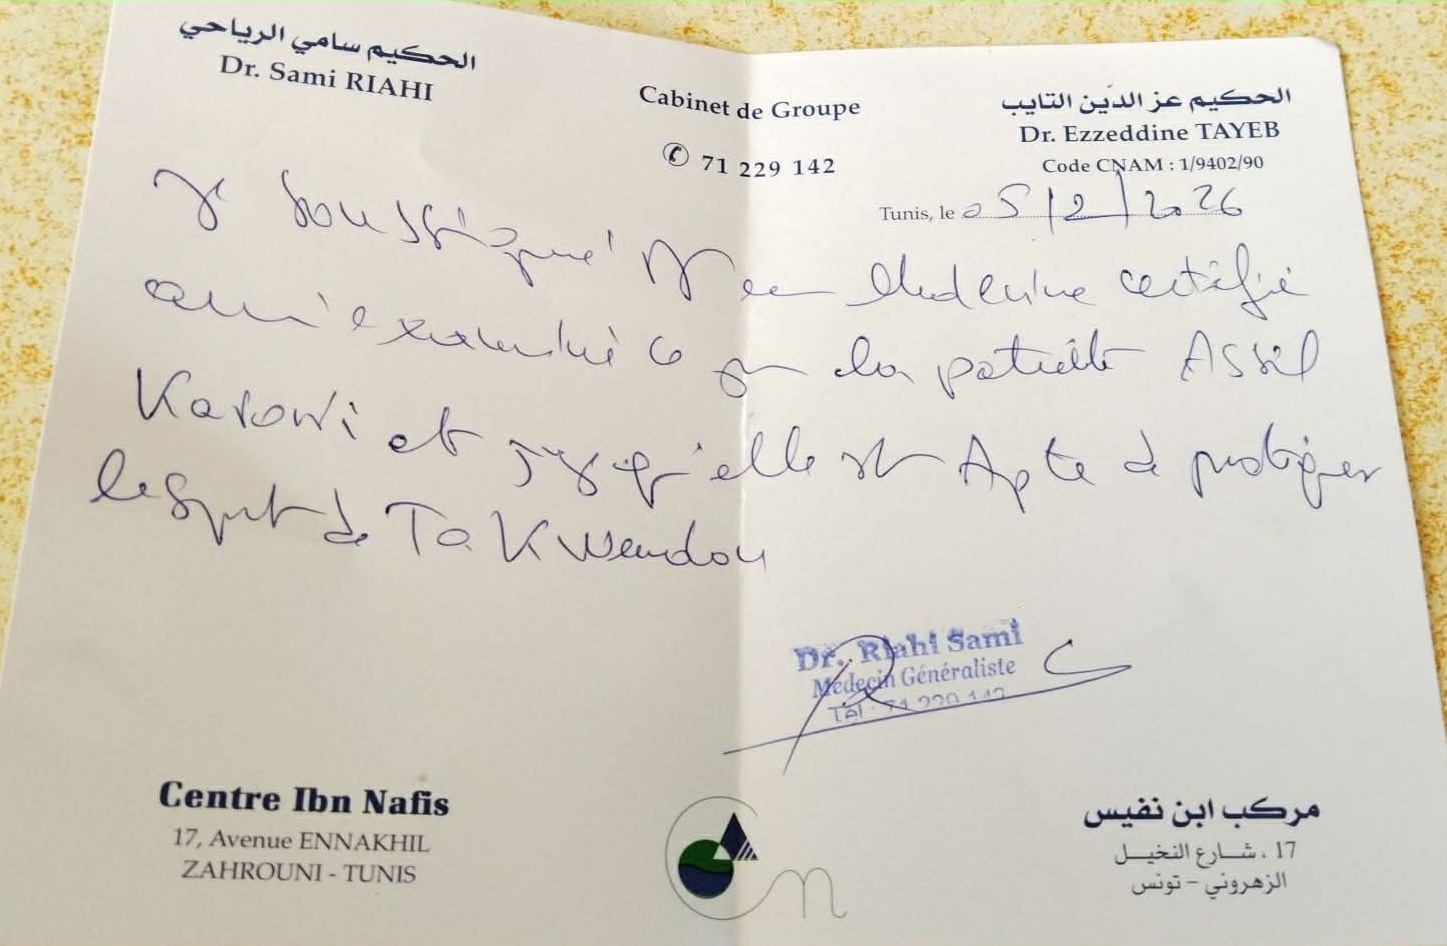 الحكيم سامي الرياحي
Dr. Sami RIAHI
Cabinet de Groupe
✆ 71 229 142
الحكيم عز الدّين التايب
Dr. Ezzeddine TAYEB
Code CNAM : 1/9402/90
Tunis, le 05/2/2026
Je soussigné Dr en Medecine certifie
examiné ce jr la patiente Assil
Karoui et qu'elle est Apte à pratiquer
le sport de
Dr. Riahi Sami
Médecin Généraliste
Tél : 71 229 142
Centre Ibn Nafis
17, Avenue ENNAKHIL
ZAHROUNI - TUNIS
مركب ابن نفيس
17 ، شارع النخيل
الزهروني - تونس